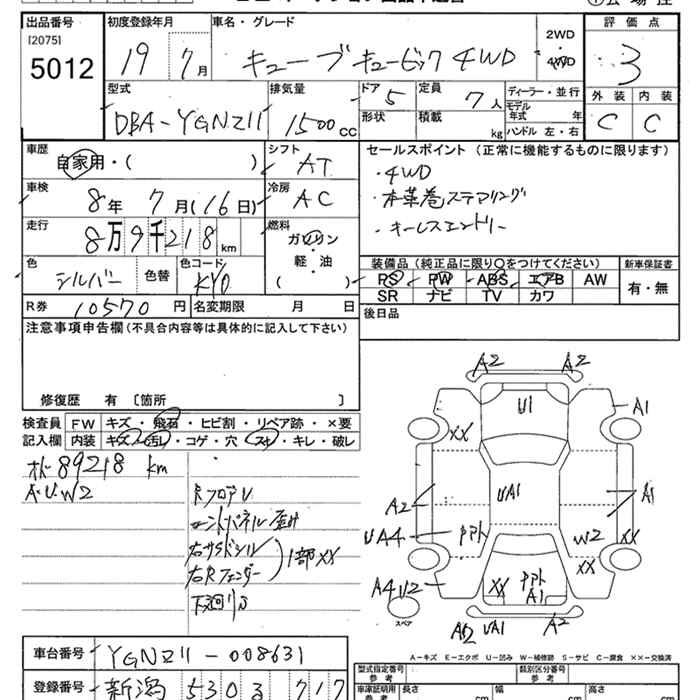 出品番号 初度登録年月 車名・グレード 2WD 評価点
[2075] 5012 19 7月 キューブキュービック 4WD 4WD 3
型式 排気量 ドア 5 定員 7人 ディーラー・並行 外装 内装
DBA-YGNZ11 1500cc 形状 積載 kg モデル年式 年 ハンドル 左・右 C C
車歴 シフト セールスポイント (正常に機能するものに限ります)
自家用・( ) AT ・4WD
車検 冷房 ・本革巻ステアリング
8年 7月(16日) AC ・キーレスエントリー
走行 燃料
8万9千218km ガソリン
軽・油
( )
色 色替 色コード 装備品(純正品に限り○をつけてください) 新車保証書
シルバー KY0 PS PW ABS エアB AW 有・無
SR ナビ TV カワ
R券 10570円 名変期限 月 日 後日品
注意事項申告欄(不具合内容等は具体的に記入して下さい)
修復歴 有 〔箇所 〕
検査員 FW キズ・飛石・ヒビ割・リペア跡・×要
記入欄 内装 キズ・汚レ・コゲ・穴・スレ・キレ・破レ
89218 km
A・U・W2
RフロアU
右サイドシル
右Rフェンダー
1部XX
A2 A2
U1 A1
XX
A2 UA1 A1
UA4 W2 XX
XX
A4U2 XX A1
スペア UA1 A2
A-キズ E-エクボ U-凹み W-補修跡 S-サビ C-腐食 ××-交換済
車台番号 YGNZ11-008631 型式指定番号 参考 類別区分番号 参考
登録番号 新潟 530 717 車庫証明用 参考 長さ cm 幅 cm 高さ cm